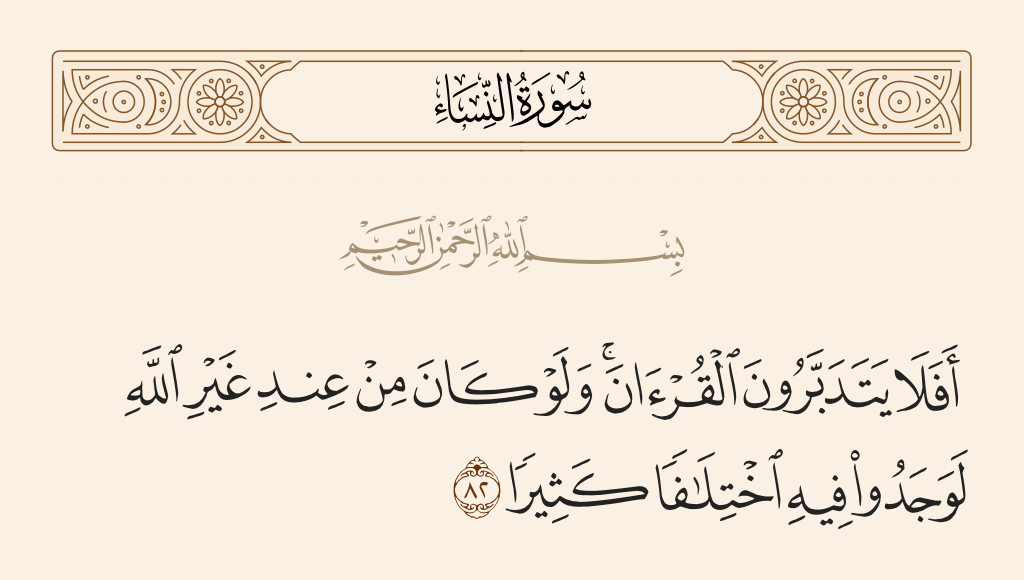 سُورَةُ النِّسَاءِ
بِسْمِ ٱللَّهِ ٱلرَّحْمَٰنِ ٱلرَّحِيمِ
أَفَلَا يَتَدَبَّرُونَ ٱلْقُرْءَانَ ۚ وَلَوْ كَانَ مِنْ عِندِ غَيْرِ ٱللَّهِ
لَوَجَدُوا۟ فِيهِ ٱخْتِلَٰفًا كَثِيرًا ٨٢